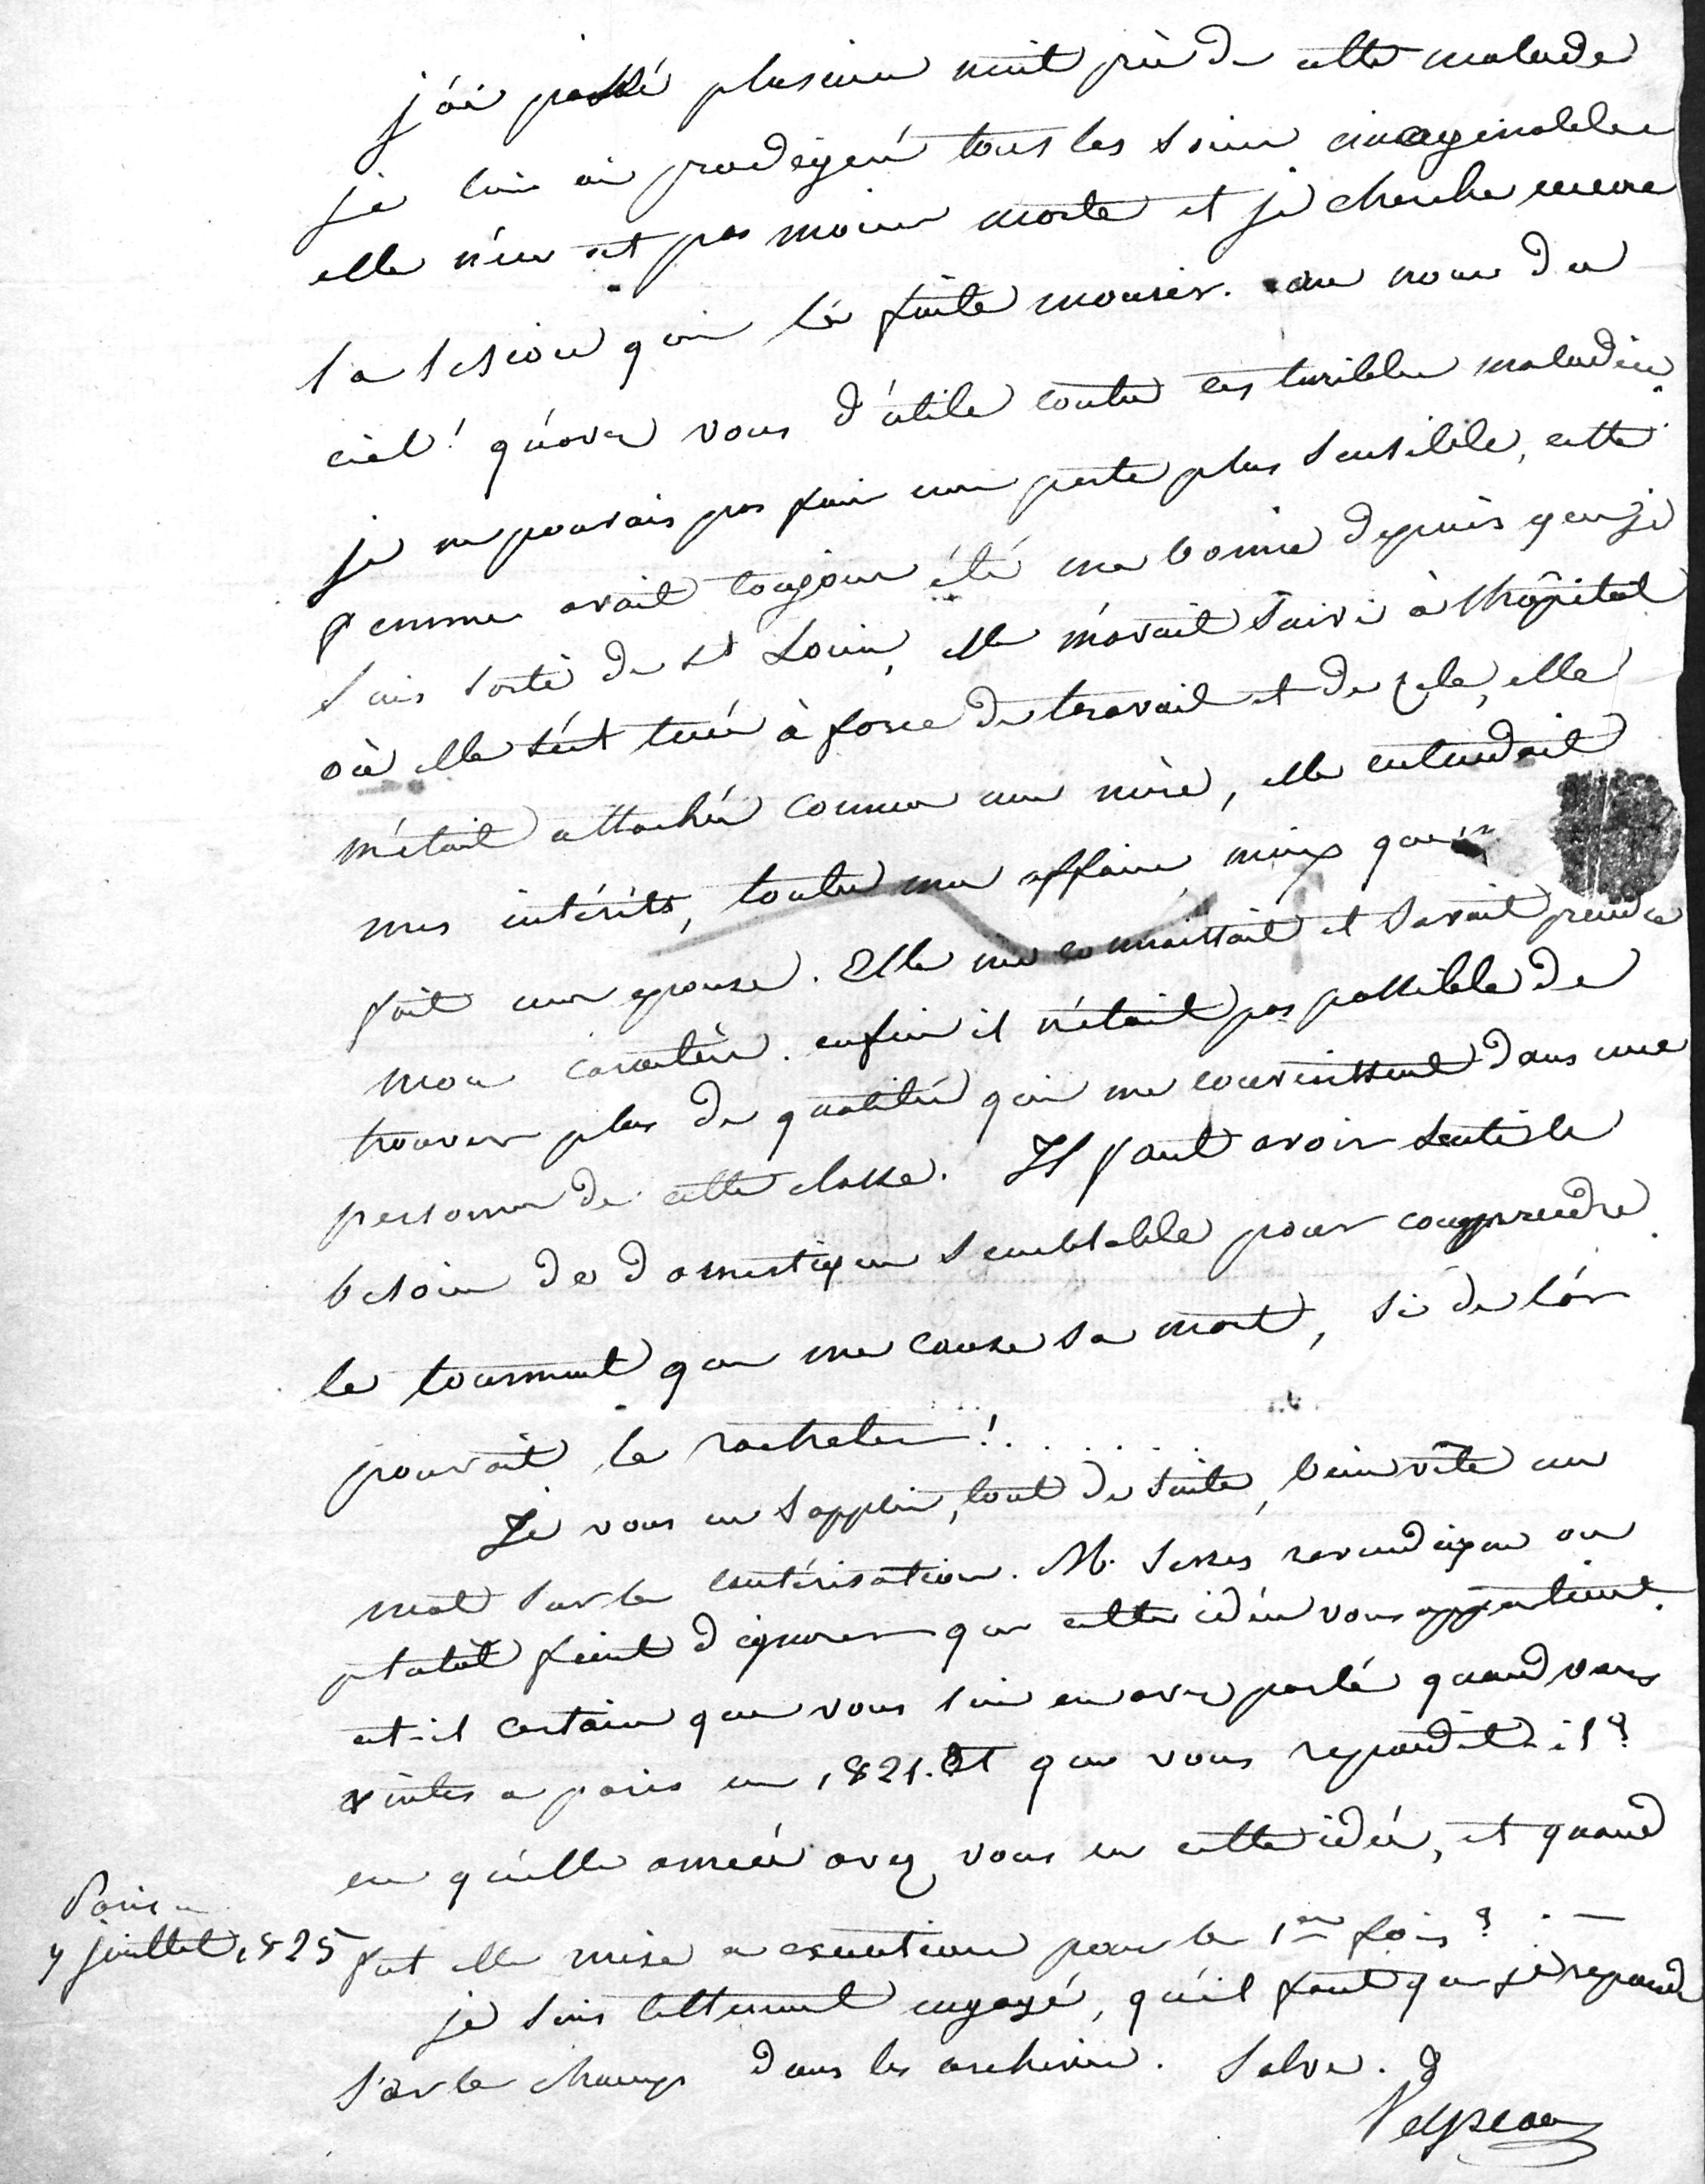 j'ai passé plusieur nuit prè de cette malade
je lui ai prodigué tous les soins imaginables
elle n'en est pas moins morte et je cherche encore
la lésion qui l'a faite mourir. au nom du
ciel! qu'avez vous d'utile contre ces terribles maladies.
je ne pouvais pas faire une perte plus sensible, cette
femme avait toujours été ma bonne depuis que je
suis sorti de St Louis, elle m'avait suivi à l'hôpital
où elle s'est tuée à force de travail et de zele, elle
m'était attachée comme une mère, elle entendait
mes intérêts, toutes mes affaires mieux que n'eut
fait une epouse. Elle me connaissait et savait prendre
mon caractère. enfin il n'était pas possible de
trouver plus de qualités qui me convinssent dans une
personne de cette classe. Il faut avoir senti le
besoin de domestiques semblable pour comprendre
le tourment que me cause sa mort, si de l'or
pouvait la racheter!......
Je vous en supplie, tout de suite, bien vite un
mot sur la cautérisation. Mr. Serres revendique ou
plutôt feint d'ignorer que cette idée vous appartient.
est-il certain que vous lui en avez parlé quand vous
vintes a paris en 1821. Et que vous repondit-il?
en qu'elle année avez vous eu cette idée, et quand
fut elle mise a exécution pour la 1ere fois?
je suis tellement engagé, qu'il faut que je reponde
sur le champ dans les archives. Salve.
Velpeau
Paris
7 juillet 1825